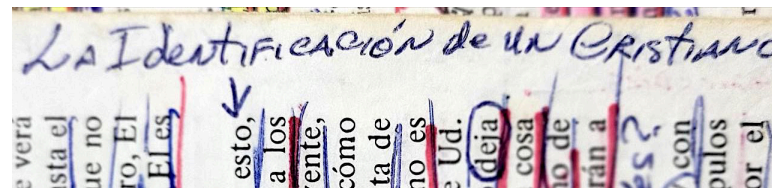 LA IdentIFICACIÓN de UN CRISTIANO
e verá
sta el
ue no
ro, El
El es
esto,
a los
ente,
cómo
ta de
no es
e Ud.
deja
cosa
no de
rán a
con
pulos
or el